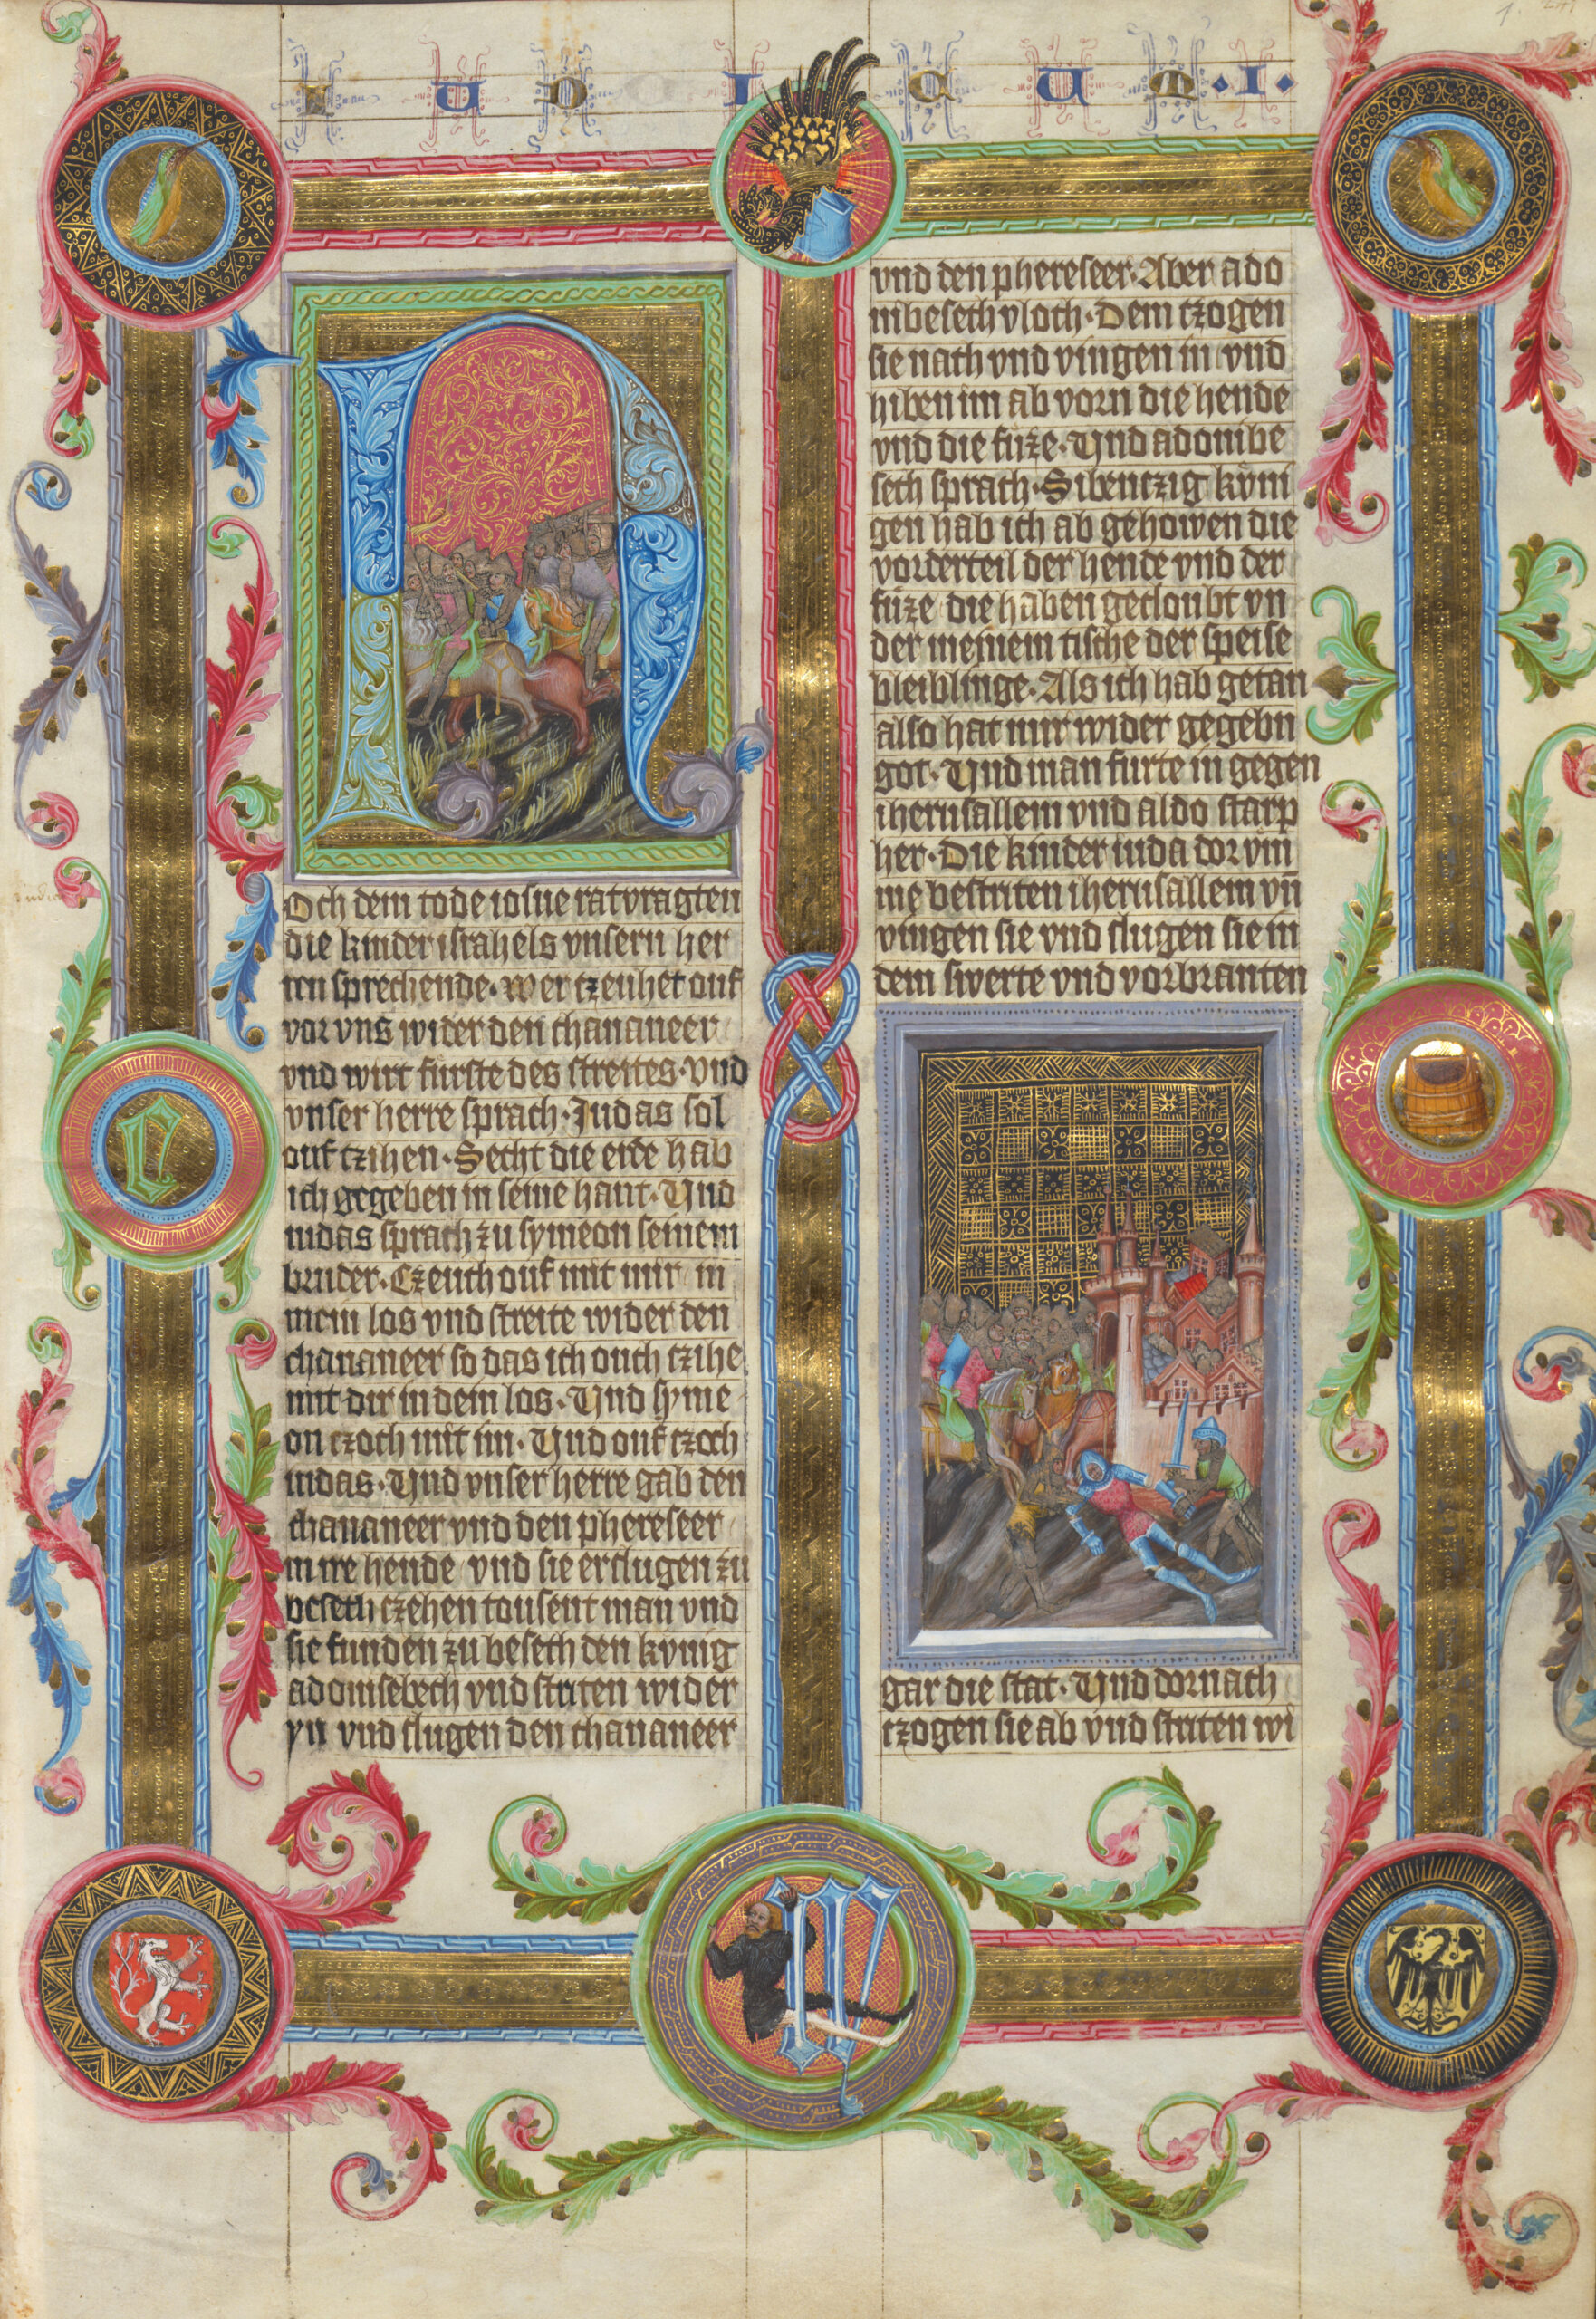 IUDICUM·I·
Och dem tode iosue ratvragten
die kinder israhels vnsern her
ren sprechende· wer tzeuhet ouf
vor vns wider den chananeer
vnd wirt furste des streites· vnd
vnser herre sprach· Iudas sol
ouf tzihen· Secht die erde hab
ich gegeben in seine hant· Vnd
iudas sprach zu symeon seinem
bruder· Czeuch ouf mit mir in
mein los vnd streite wider den
chananeer so das ich ouch tzihe
mit dir in dein los· Vnd syme
on czoch mit im· Vnd ouf tzoch
iudas· Vnd vnser herre gab den
chananeer vnd den phereseer
in ire hende vnd sie erslugen zu
beseth tzehen tousent man vnd
sie funden zu beseth den kvnig
adonisebech vnd striten wider
yn vnd slugen den chananeer
vnd den phereseer· Aber ado
nibesech vloch· Dem tzogen
sie nach vnd vingen in vnd
hiben im ab vorn die hende
vnd die fuze· Vnd adonibe
sech sprach· Sibentzig kvni
gen hab ich ab gehowen die
vorderteil der hende vnd der
fuze die haben gecloubt vn
der meinem tische der speise
bleiblinge· Als ich hab getan
also hat mir wider gegebn
got· Vnd man furte in gegen
iherusallem vnd aldo starp
her· Die kinder iuda dor vm
me bestriten iherusallem vn̄
vingen sie vnd slugen sie in
dem swerte vnd vorbranten
gar die stat· Vnd dornach
tzogen sie ab vnd striten wi
E
W